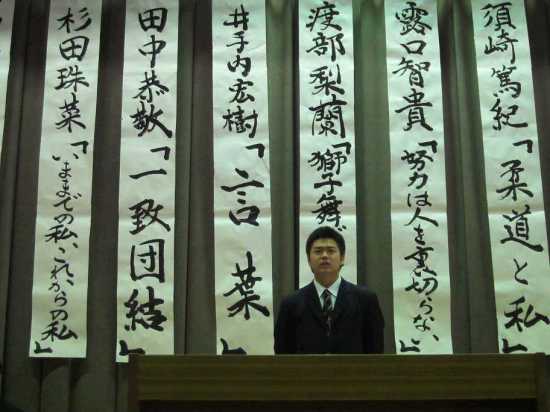 須崎篤紀「柔道と私」
露口智貴「努力は人を裏切らない」
渡部梨蘭「獅子舞
井手内宏樹「言葉」
田中恭敬「一致団結」
杉田珠菜「いままでの私、これからの私」